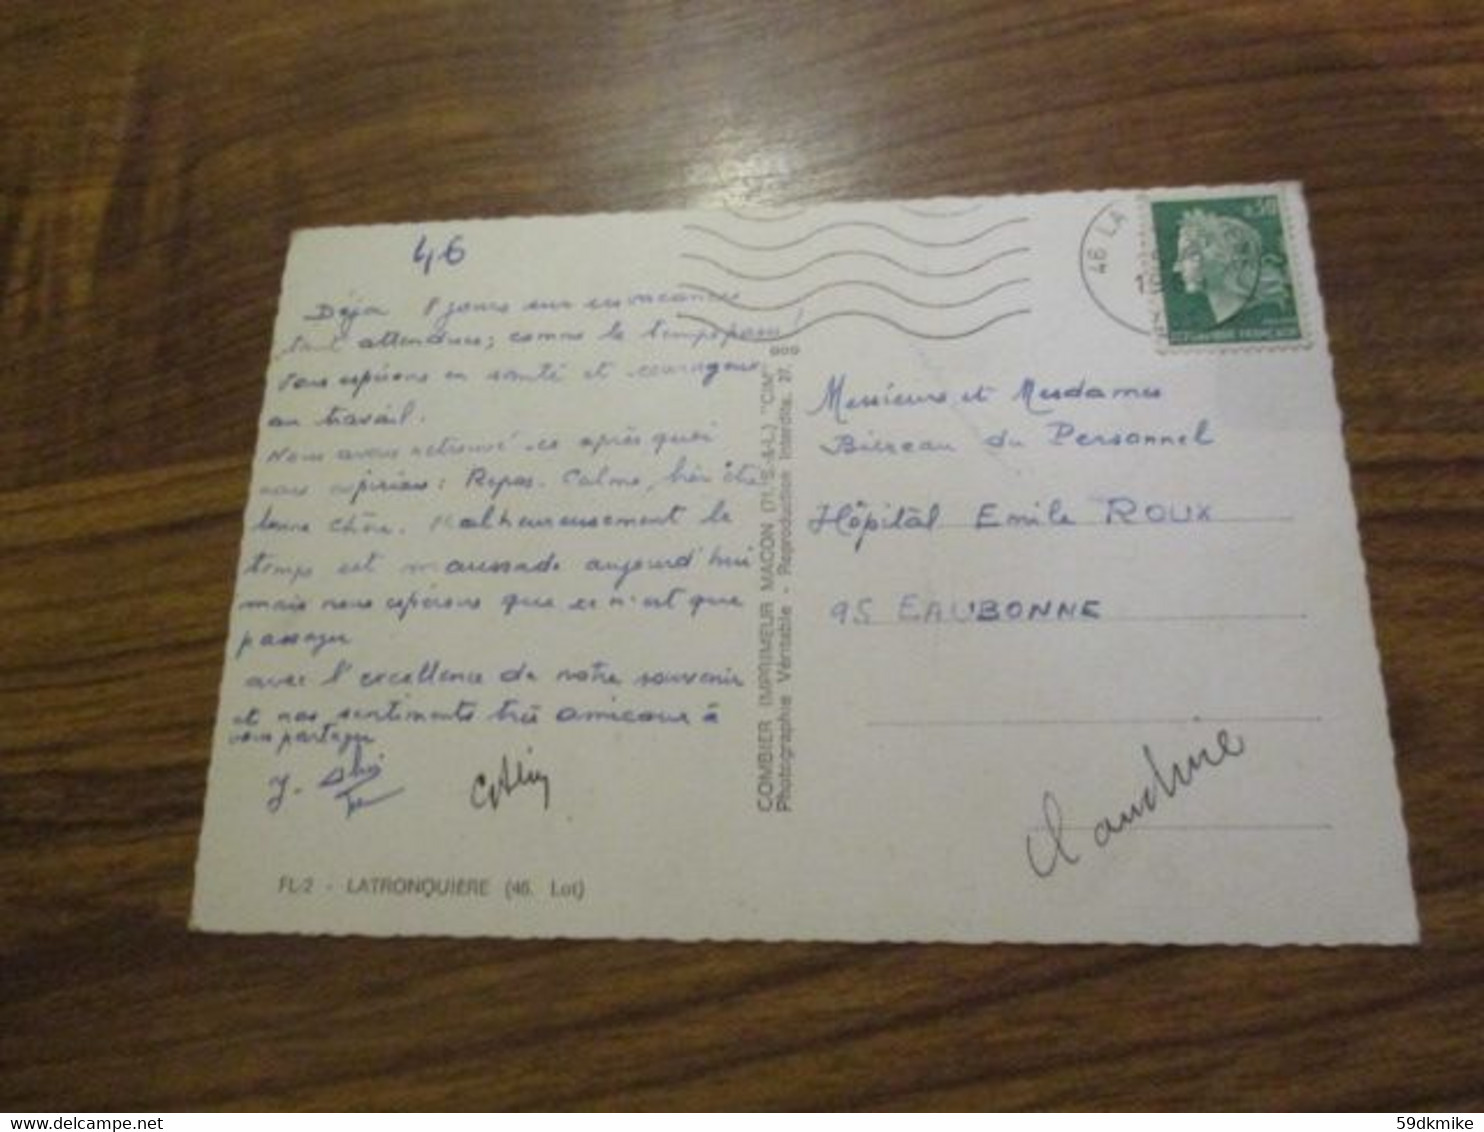 46
Déjà 8 jours sur ces vacances
tant attendues, comme le temps passe !
Vous espérons en santé et courageux
au travail.
Nous avons retrouvé ce après quoi
nous aspirions : Repos. Calme, bien être
bonne chère. Malheureusement le
temps est maussade aujourd'hui
mais nous espérons que ce n'est que
passager
avec l'excellence de notre souvenir
et nos sentiments très amicaux à
vous partager
J.
FL-2 - LATRONQUIÈRE (46. Lot)
COMBIER IMPRIMEUR MACON (71. S.-&-L.) "CIM"
Photographie Véritable - Reproduction Interdite. 27.
46 LA
0,30
REPUBLIQUE FRANÇAISE
Messieurs et Mesdames
Bureau du Personnel
Hôpital Emile ROUX
95 EAUBONNE
Claudine
59dkmike